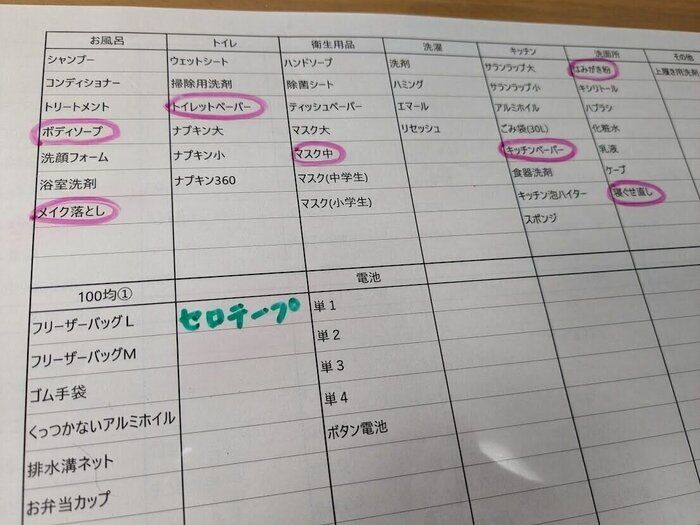 お風呂 トイレ 衛生用品 洗濯 キッチン 洗面所 その他
シャンプー ウェットシート ハンドソープ 洗剤 サランラップ大 はみがき粉 上履き用洗剤
コンディショナー 掃除用洗剤 除菌シート ハミング サランラップ小 キシリトール
トリートメント トイレットペーパー ティッシュペーパー エマール アルミホイル ハブラシ
ボディソープ ナプキン大 マスク大 リセッシュ ごみ袋(30L) 化粧水
洗顔フォーム ナプキン小 マスク中 キッチンペーパー 乳液
浴室洗剤 ナプキン360 マスク(中学生) 食器洗剤 ケープ
メイク落とし マスク(小学生) キッチン泡ハイター 寝ぐせ直し
スポンジ
100均① 電池
フリーザーバッグL セロテープ 単1
フリーザーバッグM 単2
ゴム手袋 単3
くっつかないアルミホイル 単4
排水溝ネット ボタン電池
お弁当カップ